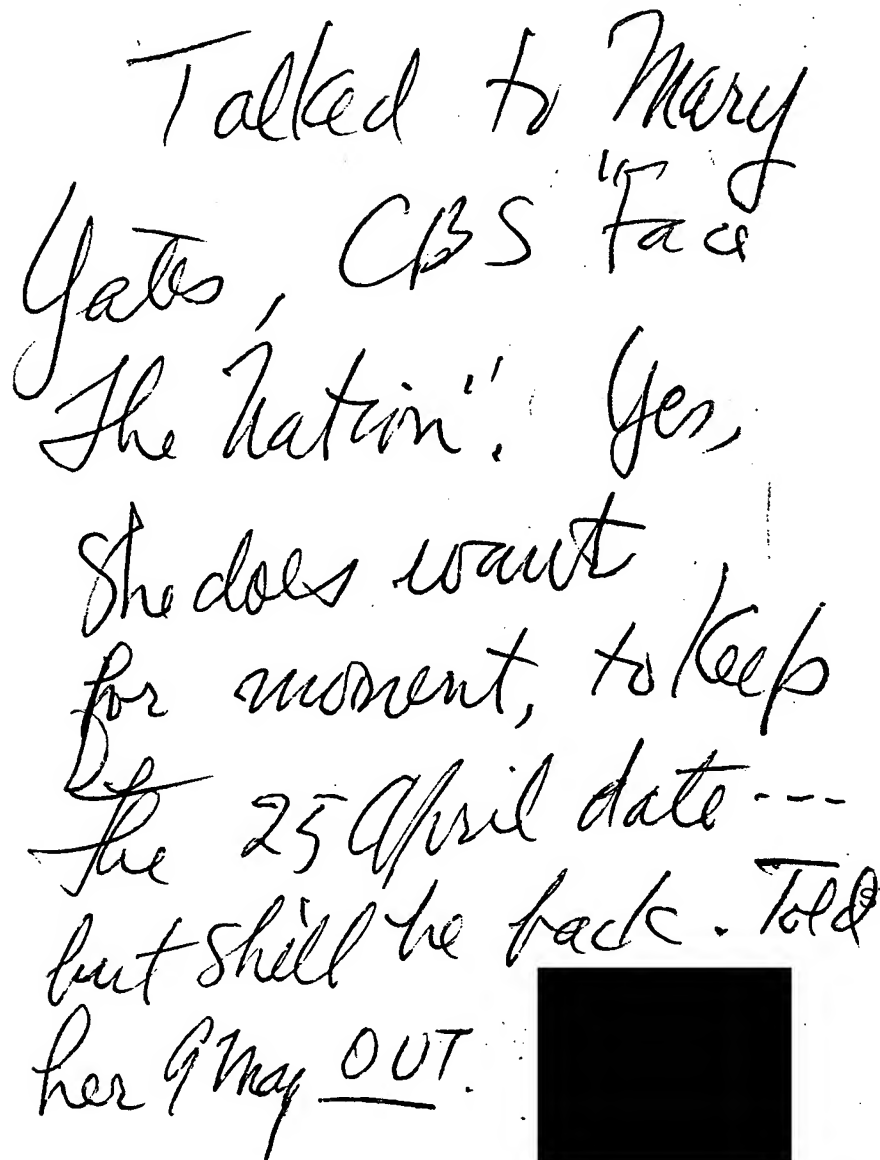 Talked to Mary
Yates, CBS "Face
The Nation". Yes,
She does want,
for moment, to keep
the 25 April date ---
but she'll be back. Told
her 9 May OUT.